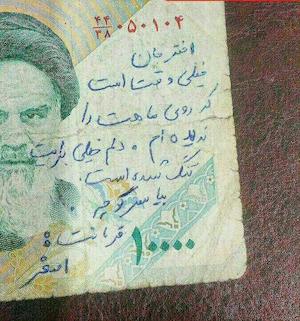 ۴۴/۳۸ ۰۵۰۱۰۴
اختر جان
خیلی وقت است
که روی ماهت را
ندیده ام و دلم خیلی برایت
تنگ شده است.
بیا سر کوچه.
قربانت
اصغر
۱۰۰۰۰